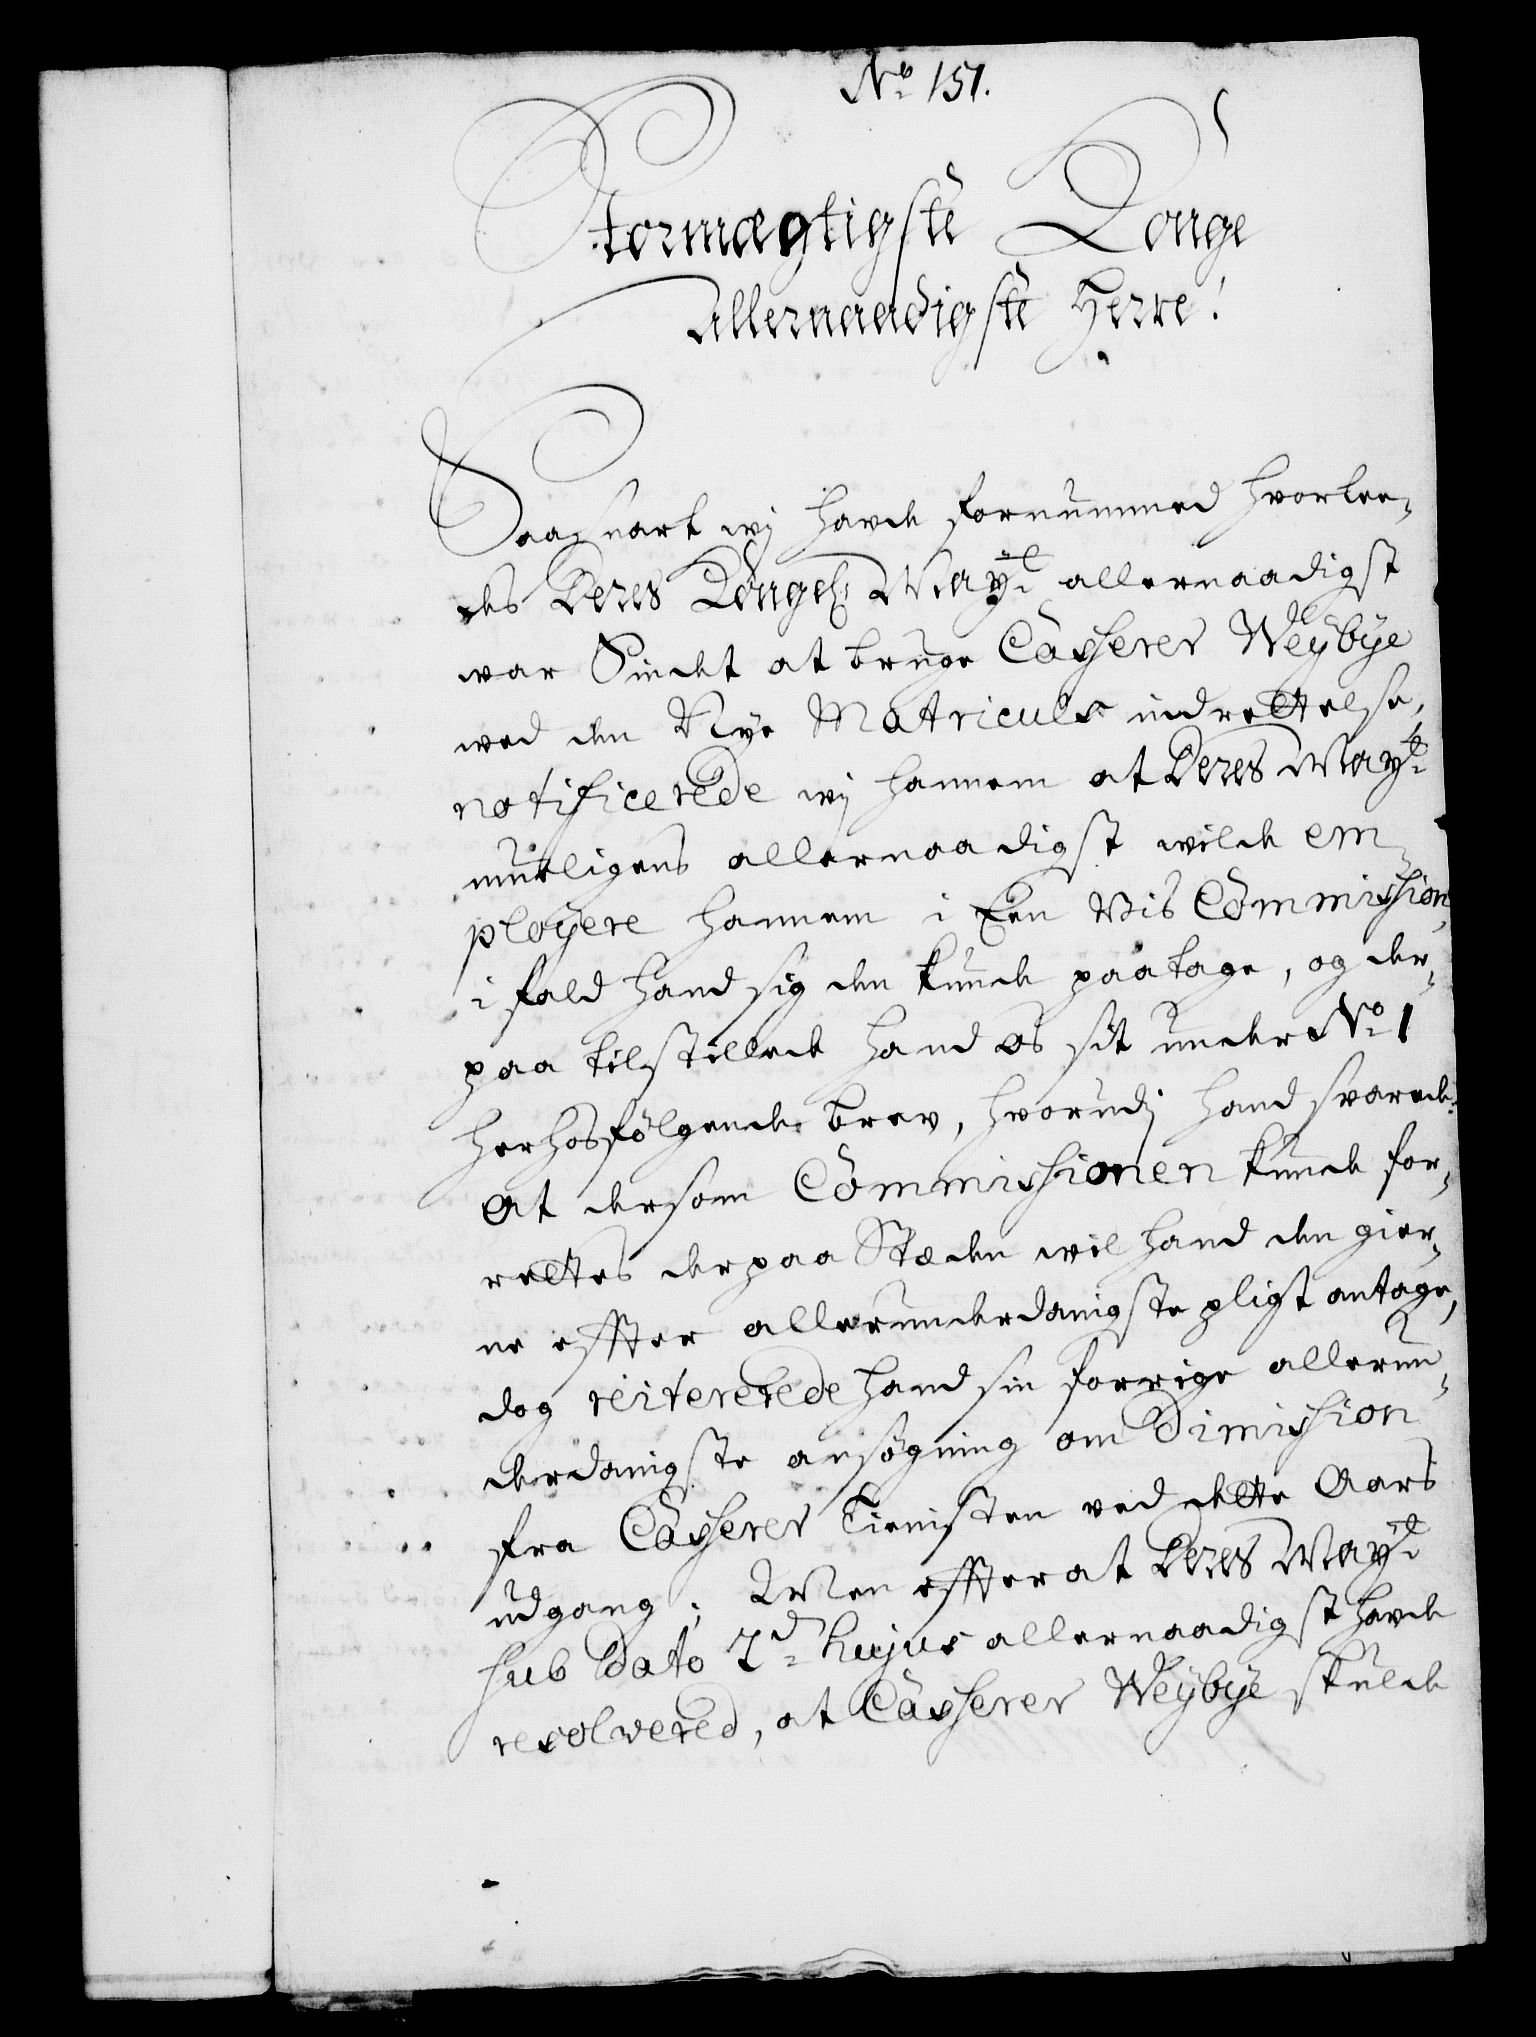 No 151.
Stormægtigste Konge
Allernaadigste Herre!
Saasnart wj havde fornummed hvorlee-
des Deres Kongel: Mayt allernaadigst
war Sindet at bruge Casserer Weybye
wed den Nye Matriculs indrettelse,
notificerede wj hannem at Deres Mayt
mueligens allernaadigst wilde em-
ployere hannem i Een Vis Commission,
i fald hand sig den kunde paatage, og der-
paa tilstillede hand os sit under No 1
herhosfölgende brev, hvorudj hand svarede:
At dersom Commissionen kunde for-
rettes der paa Stæden wil hand den gier-
ne effter allerunderdanigste pligt antage,
dog reitererede hand sin forrige allerun-
derdanigste ansögning om Dimission
fra Casserer Tienisten ved dette Aars
udgang; Men effterat Deres Mayt
sub Dato 7d hujus allernaadigst havde
resolvered, at Casserer Weybye skulde